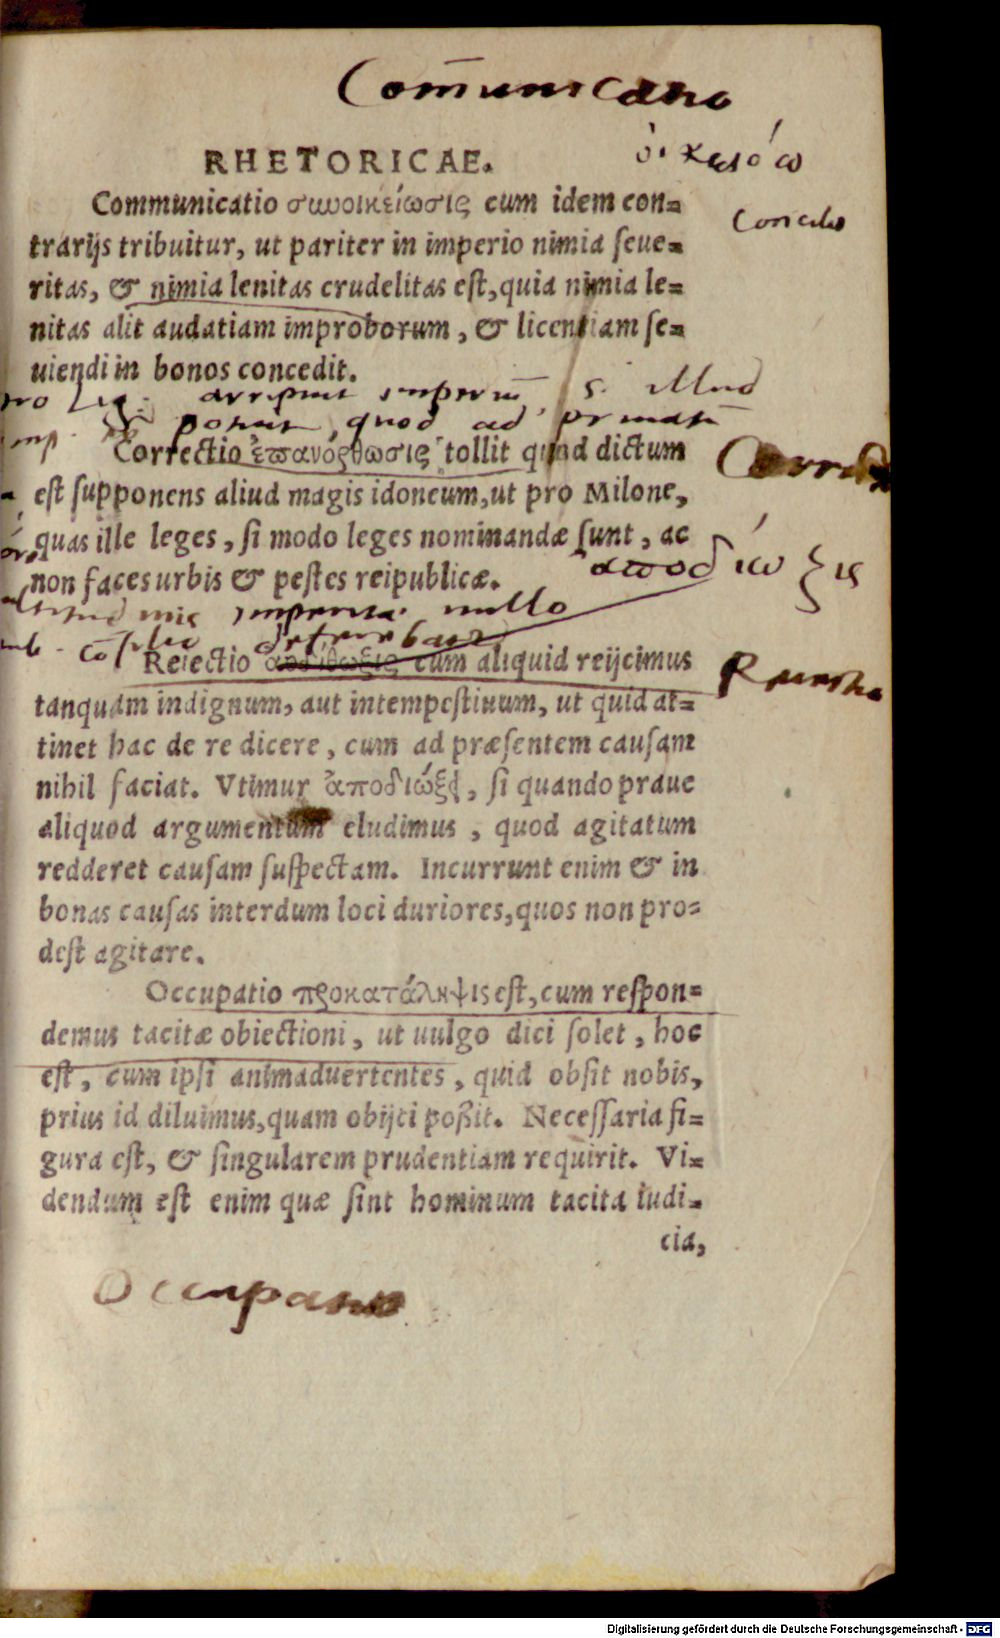 Com̄unicatio
RHETORICAE.
οἰκειόω
Communicatio συνοικείωσις cum idem con=
Concilio
trarijs tribuitur, ut pariter in imperio nimia ſeue=
ritas, & nimia lenitas crudelitas eſt, quia nimia le=
nitas alit audatiam improborum, & licentiam ſe=
uiendi in bonos concedit.
arripuit imperiū, s. illud
ponit, quod ad
Correctio ἐπανόρθωσις tollit quod dictum
est ſupponens aliud magis idoneum, ut pro Milone,
quas ille leges, ſi modo leges nominandæ ſunt, ac
ἀποδίωξις
non faces urbis & peſtes reipublicæ.
nullo
Reiectio αποδίθωξις cum aliquid reijcimus
tanquam indignum, aut intempeſtiuum, ut quid at=
tinet hac de re dicere, cum ad præſentem cauſam
nihil faciat. Vtimur ἀποδιώξει, ſi quando praue
aliquod argumentum eludimus, quod agitatum
redderet cauſam ſuſpectam. Incurrunt enim & in
bonas cauſas interdum loci duriores, quos non pro=
deſt agitare.
Occupatio προκατάληψις eſt, cum reſpon=
demus tacitæ obiectioni, ut uulgo dici ſolet, hoc
eſt, cum ipſi animaduertentes, quid obſit nobis,
prius id diluimus, quam obijci poßit. Neceſſaria fi=
gura eſt, & ſingularem prudentiam requirit. Vi=
dendum eſt enim quæ ſint hominum tacita iudi=
cia,
Occupatio
Digitalisierung gefördert durch die Deutsche Forschungsgemeinschaft - DFG